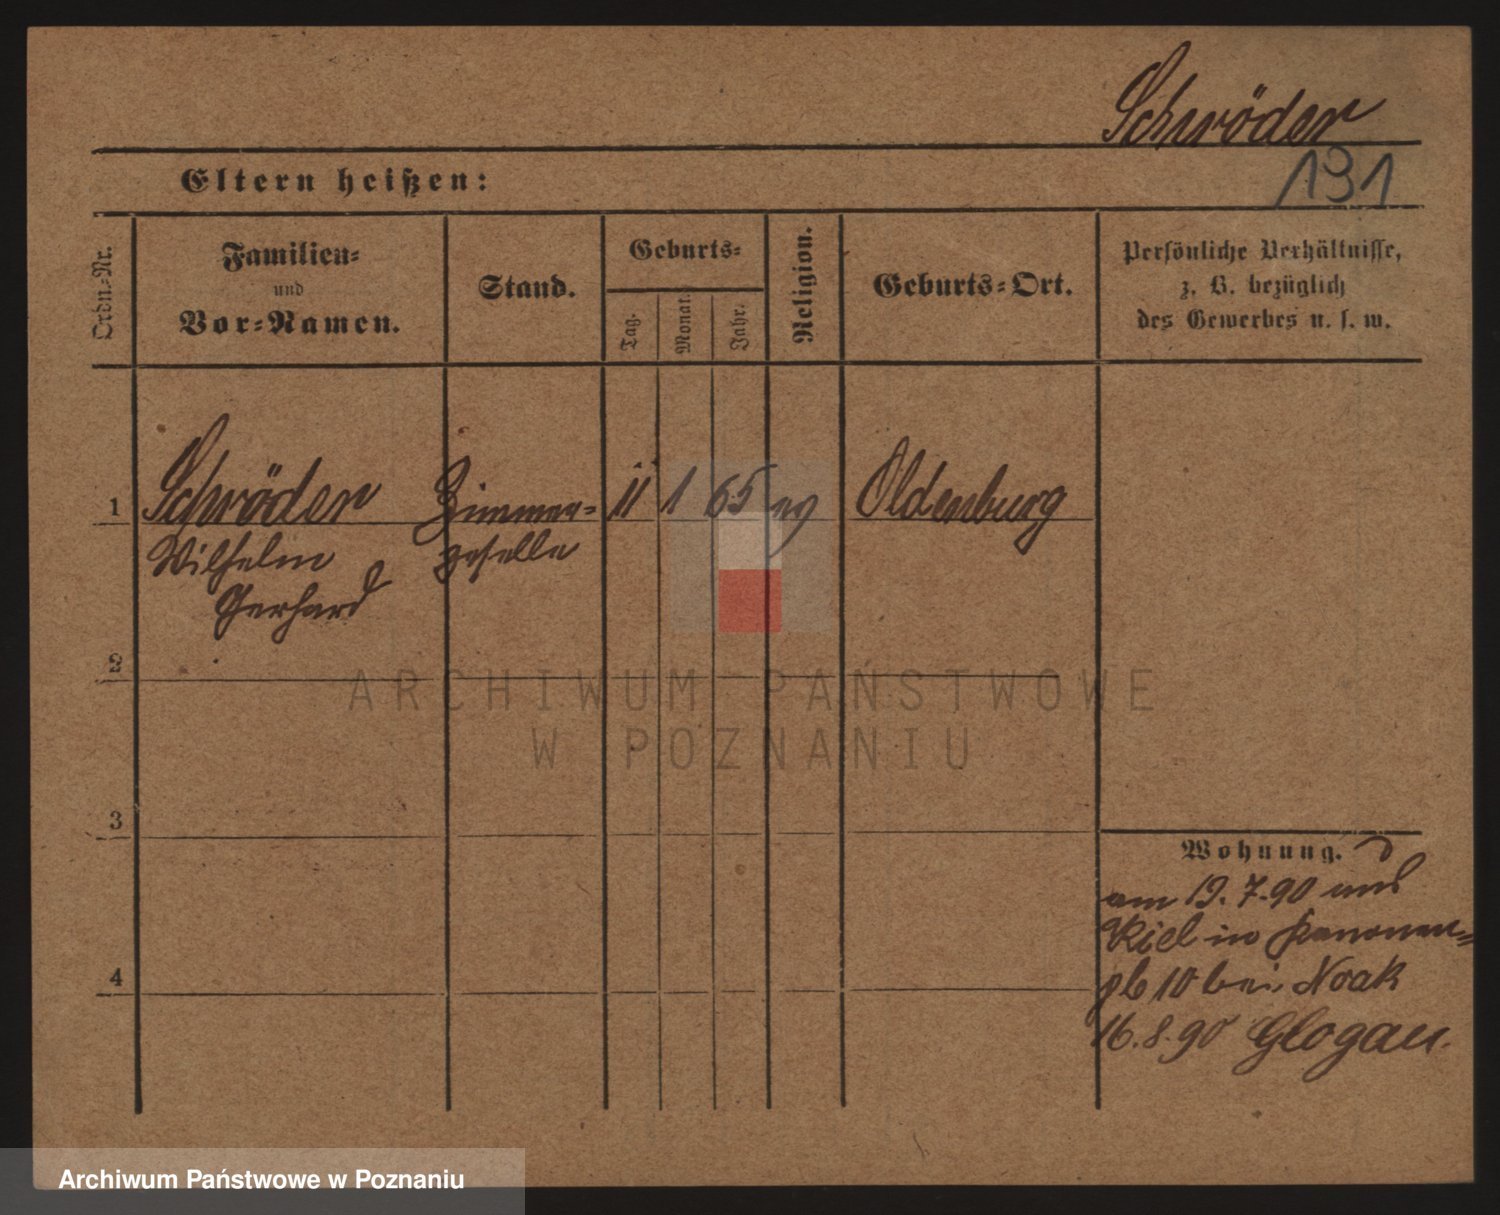 Schröder
191
Eltern heißen:
Ordn.-Nr.
Familien-
und
Vor-Namen.
Stand.
Geburts-
Tag.
Monat.
Jahr.
Religion.
Geburts-Ort.
Persönliche Verhältnisse,
z. B. bezüglich
des Gewerbes u. s. w.
1 Schröder Zimmer- 11 1 65 eg Oldenburg
Wilhelm geselle
Gerhard
2
ARCHIWUM PAŃSTWOWE
W POZNANIU
3
Wohnung.
am 19. 7. 90 aus
Kiel in Kanonen-
4
pl 10 bei Noak
16. 8. 90 Glogau.
Archiwum Państwowe w Poznaniu